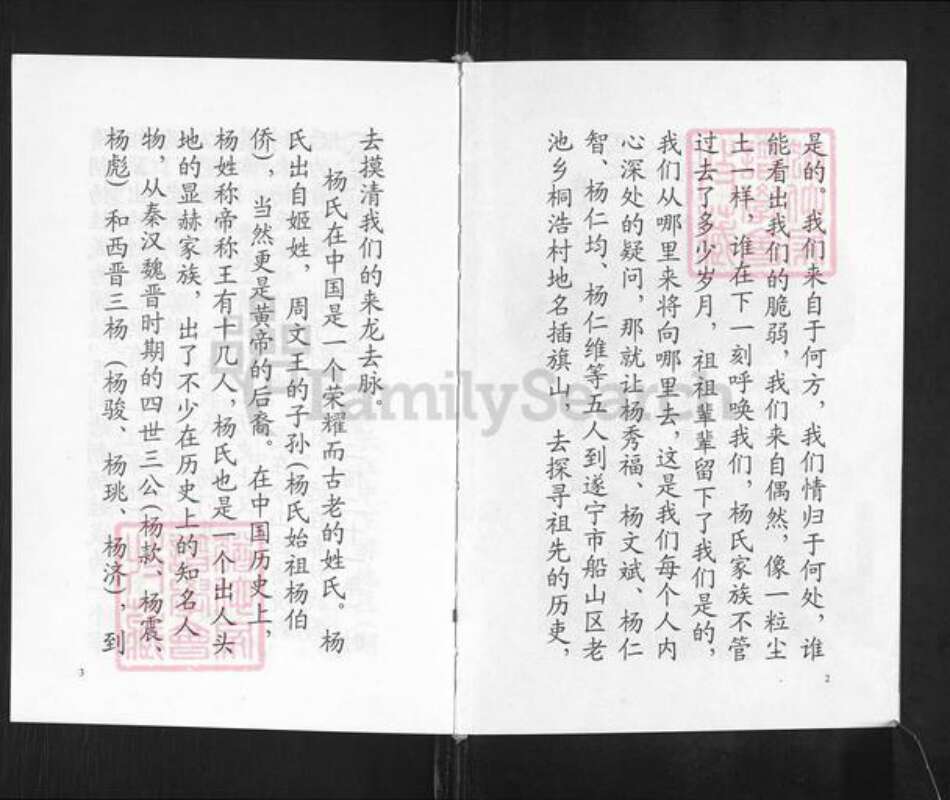 是的。我们来自于何方，我们情归于何处，谁
能看出我们的脆弱，我们来自偶然，像一粒尘
土一样，谁在下一刻呼唤我们，杨氏家族不管
过去了多少岁月，祖祖辈辈留下了我们是的，
我们从哪里来将向哪里去，这是我们每个人内
心深处的疑问，那就让杨秀福、杨文斌、杨仁
智、杨仁均、杨仁维等五人到遂宁市船山区老
池乡桐浩村地名插旗山，去探寻祖先的历吏，
2
去摸清我们的来龙去脉。
杨氏在中国是一个荣耀而古老的姓氏。杨
氏出自姬姓，周文王的子孙(杨氏始祖杨伯
侨)，当然更是黄帝的后裔。在中国历史上，
杨姓称帝称王有十几人，杨氏也是一个出人头
地的显赫家族，出了不少在历史上的知名人
物，从秦汉魏晋时期的四世三公(杨款、杨震、
杨彪)和西晋三杨(杨骏、杨珧、杨济)，到
3
FamilySearch